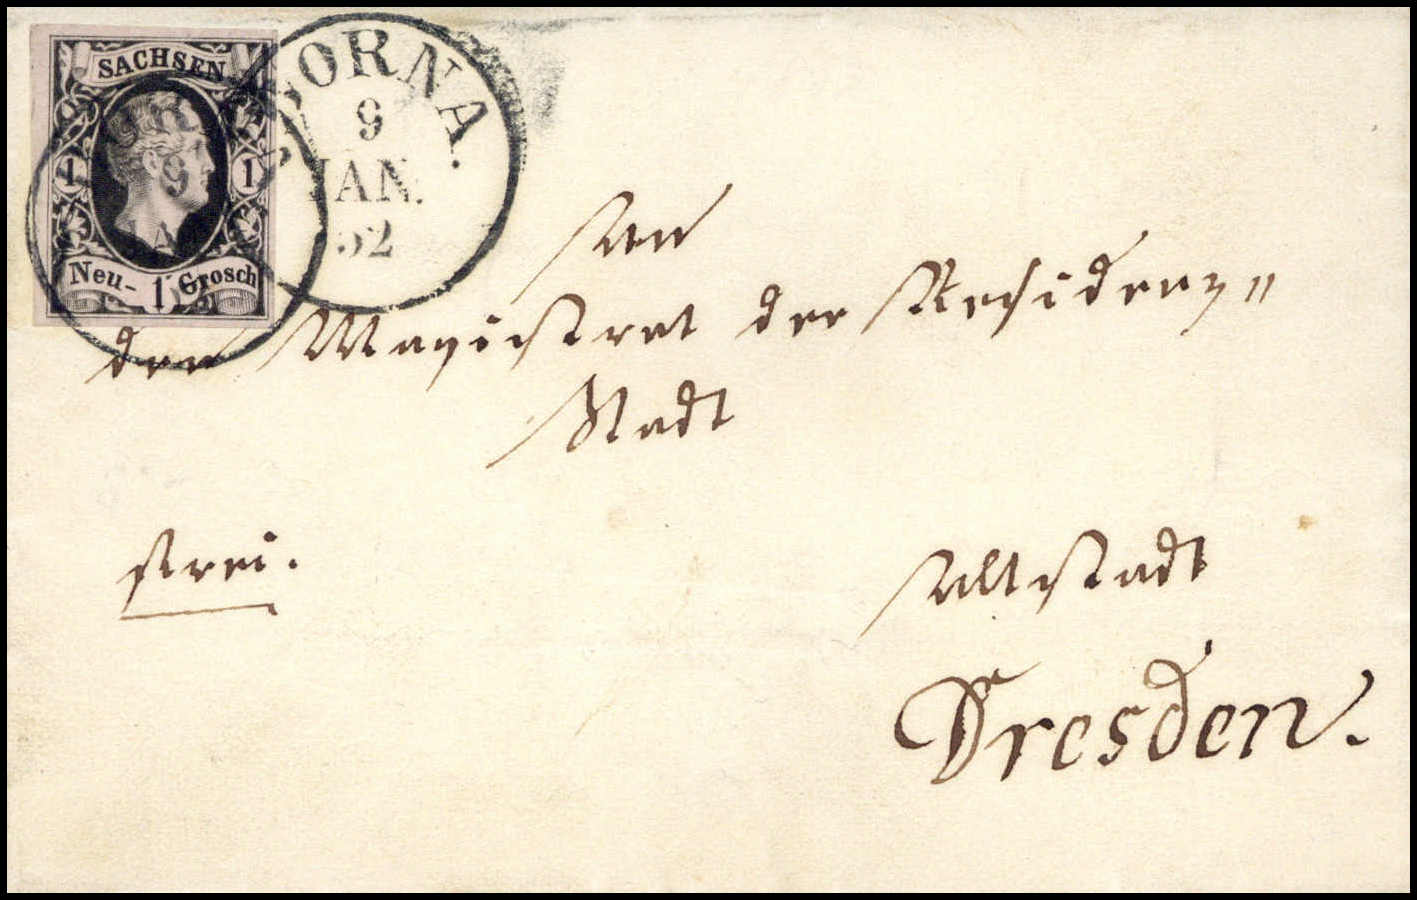 SACHSEN
1 1
Neu- 1 Grosch
BORNA.
9
JAN.
52
An
den Magistrat der Residenz"
Stadt
frei.
Altstadt
Dresden.